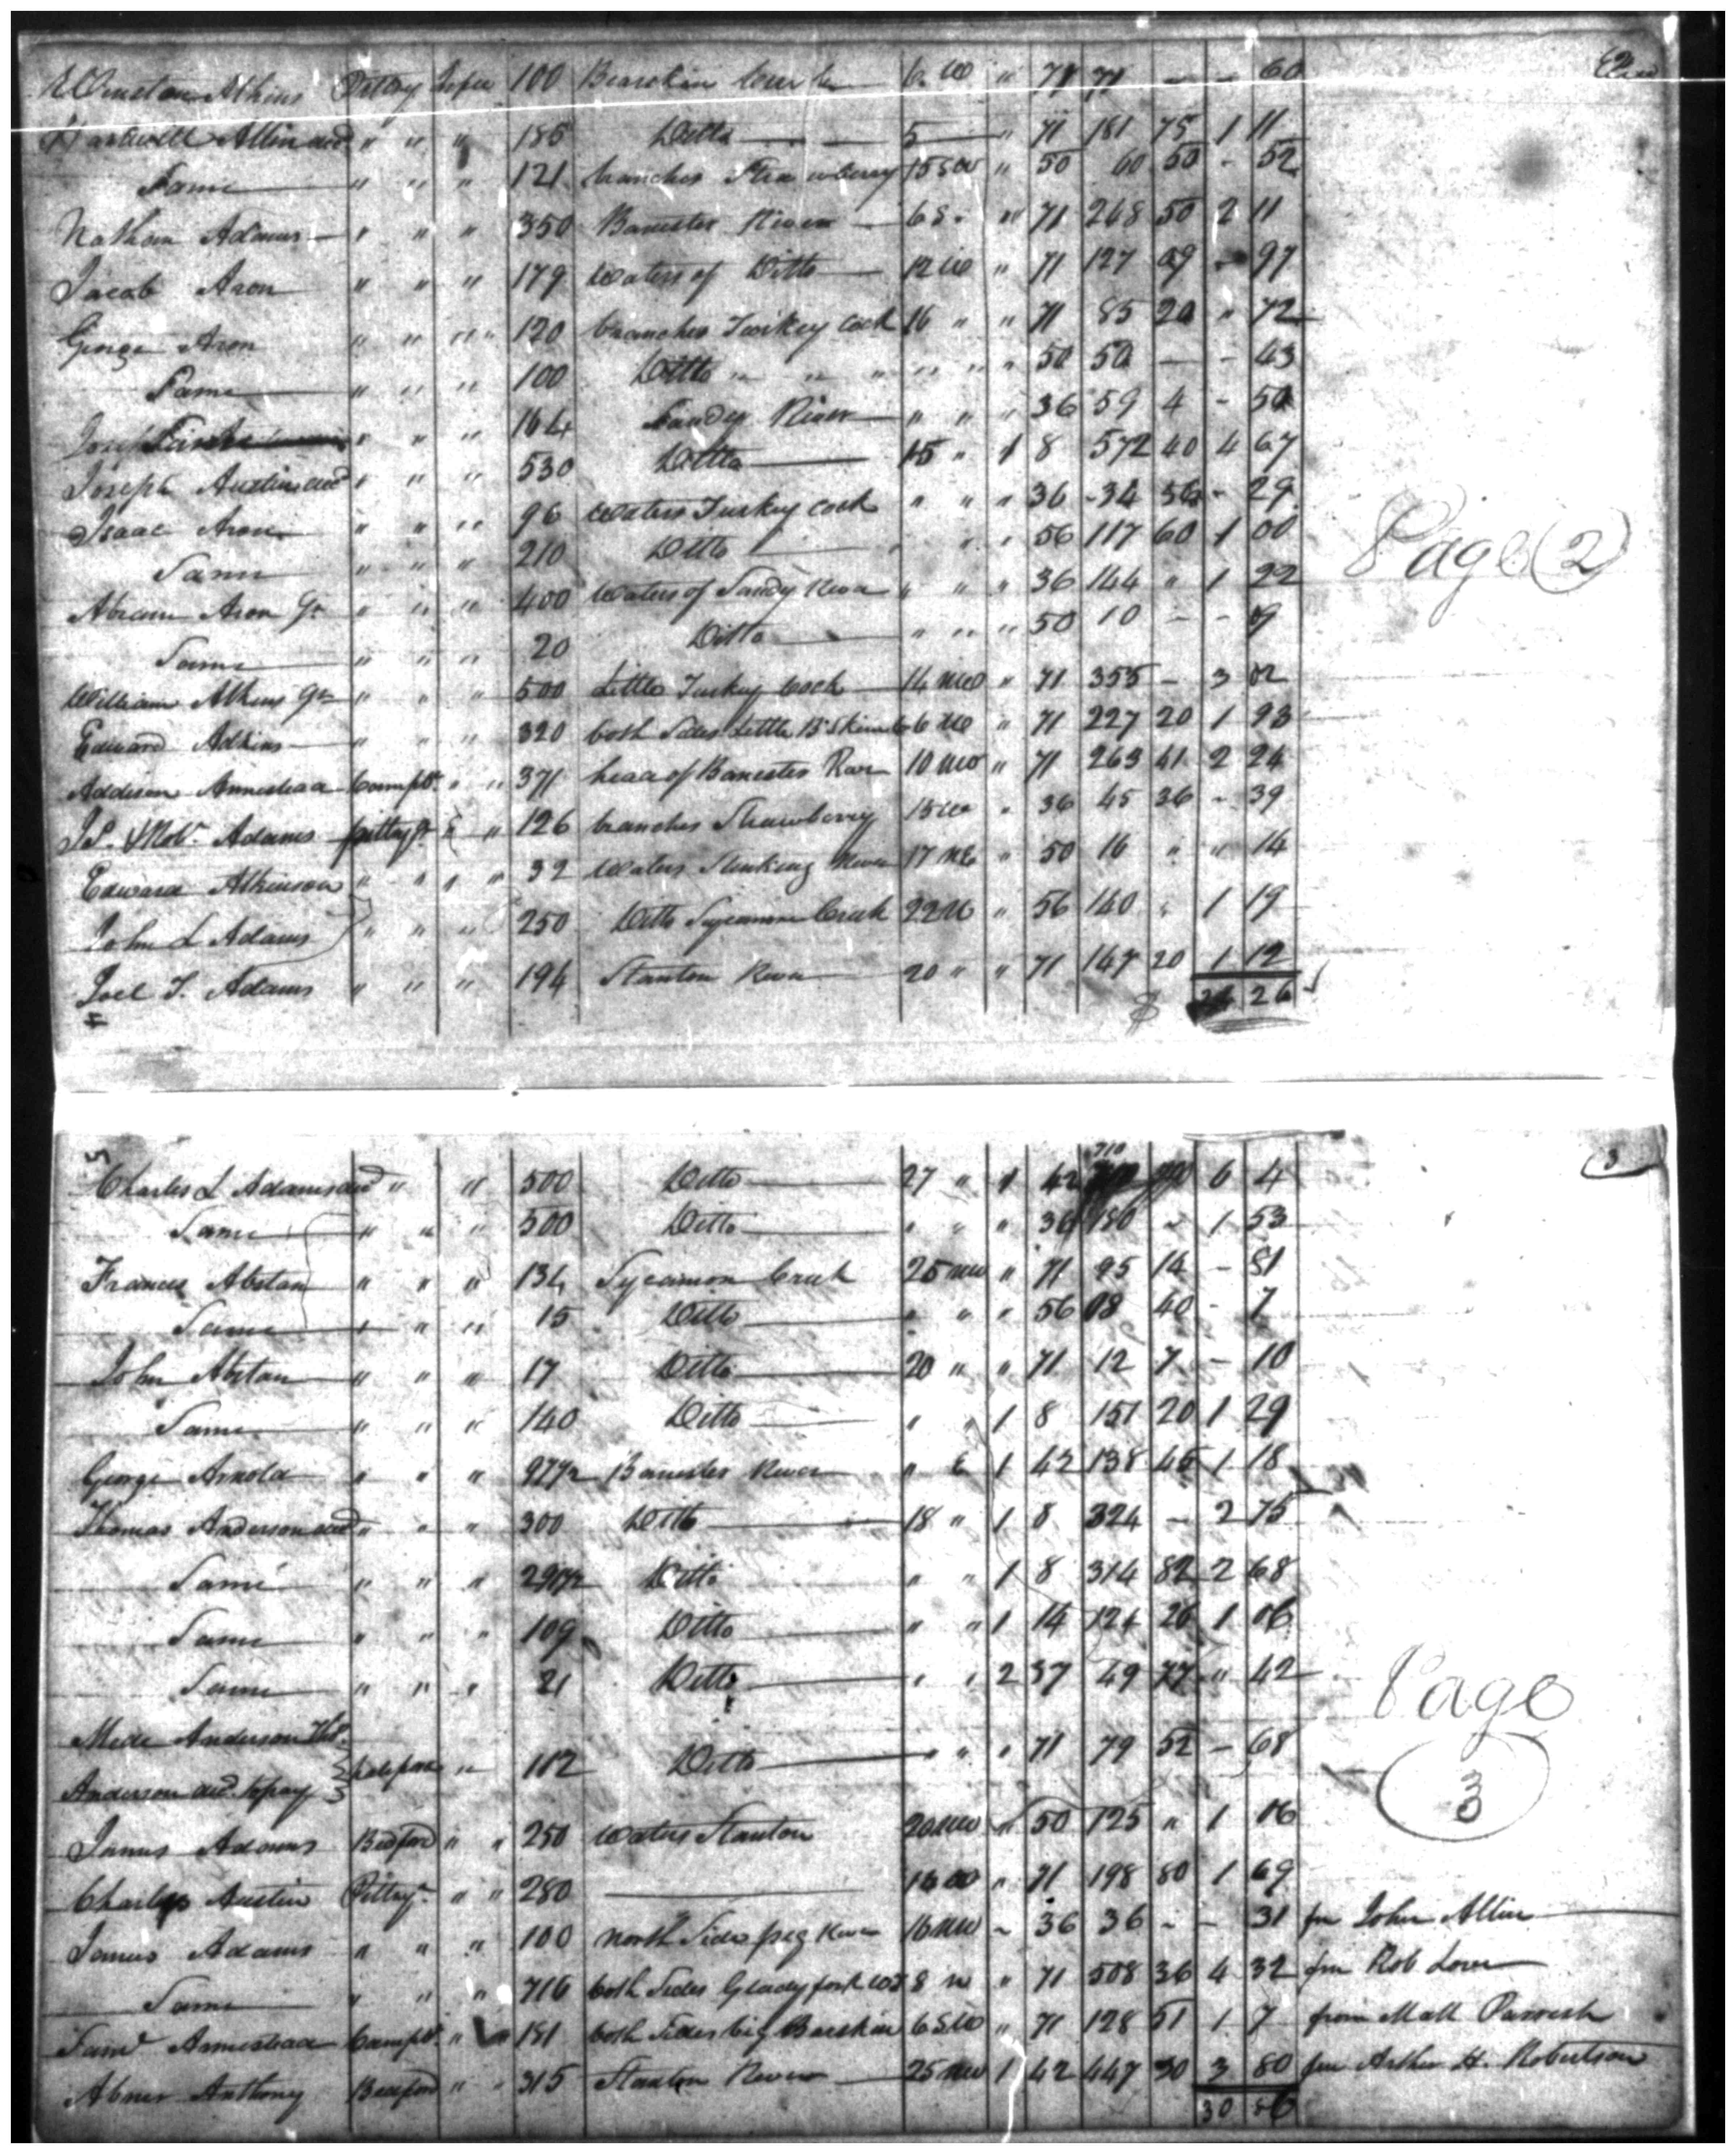 Winston Atkins Pittsy In fee 100 Bearskin Creek 6 W " 71 71 — — 60
Hartwell Allin decd " " " 185 Ditto 5 " 71 181 75 1 11
Same " " " 121 branches Strawberry 15 SW " 50 60 50 - 52
Nathan Adams " " " 350 Banester River 6 S. " 71 268 50 2 11
Jacob Aron " " " 179 Waters of Ditto 12 W " 71 127 09 - 97
George Aron " " " 120 branches Turkey Cock 16 " " 71 85 20 " 72
Same " " " 100 Ditto " " " " " " 50 50 — - 43
" " " 164 Sandy River " " " 36 59 4 - 50
Joseph Austin decd " " " 530 Ditto 15 " 1 8 572 40 4 67
Isaac Aron " " " 96 Waters Turkey Cock " " " 36 34 56 - 29
Same " " " 210 Ditto " " " 56 117 60 1 00
Abram Aron Jr " " " 400 Waters of Sandy River " " " 36 144 " 1 22
Same " " " 20 Ditto " " " 50 10 — - 9
William Atkins Jr " " " 500 Little Turkey Cock 14 NW " 71 355 - 3 02
Edward Adkins " " " 320 both Sides Little B Skin 6 W " 71 227 20 1 93
Addison Armestead Campbl. " " 371 head of Banester River 10 NW " 71 263 41 2 24
J.S. & Robt. Adams pittsy " " 126 branches Strawberry 15 W " 36 45 36 - 39
Edward Atkinson " " " " 32 Waters Stinking River 17 NE " 50 16 " " 14
John L Adams " " " 250 Ditto Sycamore Creek 22 N " 56 140 " 1 19
Joel T. Adams " " " 194 Stanton River 20 " " 71 147 20 1 12
$ 26
Page (2)
3
Charles L Adams decd " " 500 Ditto 27 " 1 42 710 6 4
Same " " " 500 Ditto " " " 36 180 - 1 53
Frances Abstan " " " 134 Sycamore Creek 25 NW " 71 95 14 - 81
Same " " " 15 Ditto " " " 56 08 40 - 7
John Abstan " " " 17 Ditto 20 " " 71 12 7 - 10
Same " " " 140 Ditto " " 1 8 151 20 1 29
George Arnold " " " 97 1/2 Banester River " E 1 42 138 45 1 18
Thomas Anderson decd " " " 300 Ditto 18 " 1 8 324 — 2 75
Same " " " 291 1/2 Ditto " " 1 8 314 82 2 68
Same " " " 109 Ditto " " 1 14 124 26 1 06
Same " " " 21 Ditto " " 2 37 49 77 " 42
Mede Anderson
Anderson decd to pay } halifax " 112 Ditto " " " 71 79 52 - 68
James Adams Bedford " " 250 Waters Stanton 20 NW " 50 125 " 1 06
Charles Austin Pittsy. " " 280 16 W " 71 198 80 1 69
James Adams " " " 100 North Side pig River 16 NW " 36 36 - - 31 fm John Allin
Same " " " 716 both Sides Glady fork 8 W " 71 508 36 4 32 fm Rob Love
Saml Armestead Campbl. " " 181 both Sides big Bearskin 6 SW " 71 128 51 1 7 from Matt Parrish
Abner Anthony Bedford " " 315 Stanton River 25 NW 1 42 447 30 3 80 fm Arther H. Robertson
30 86
Page
3